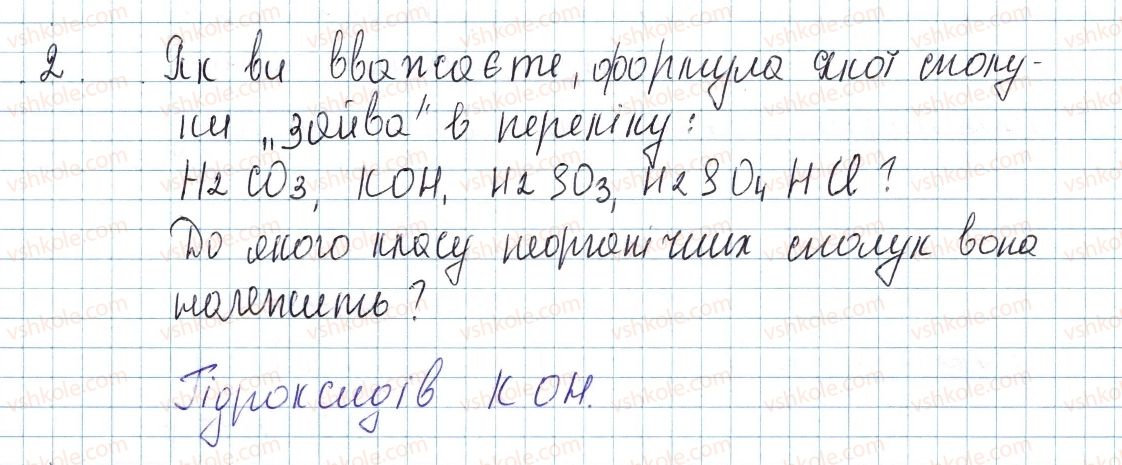 2. Як ви вважаєте, формула якої сполу-
ки „зайва" в переліку:
H2CO3, KOH, H2SO3, H2SO4 HCl?
До якого класу неорганічних сполук вона
належить?
Гідроксидів KOH.